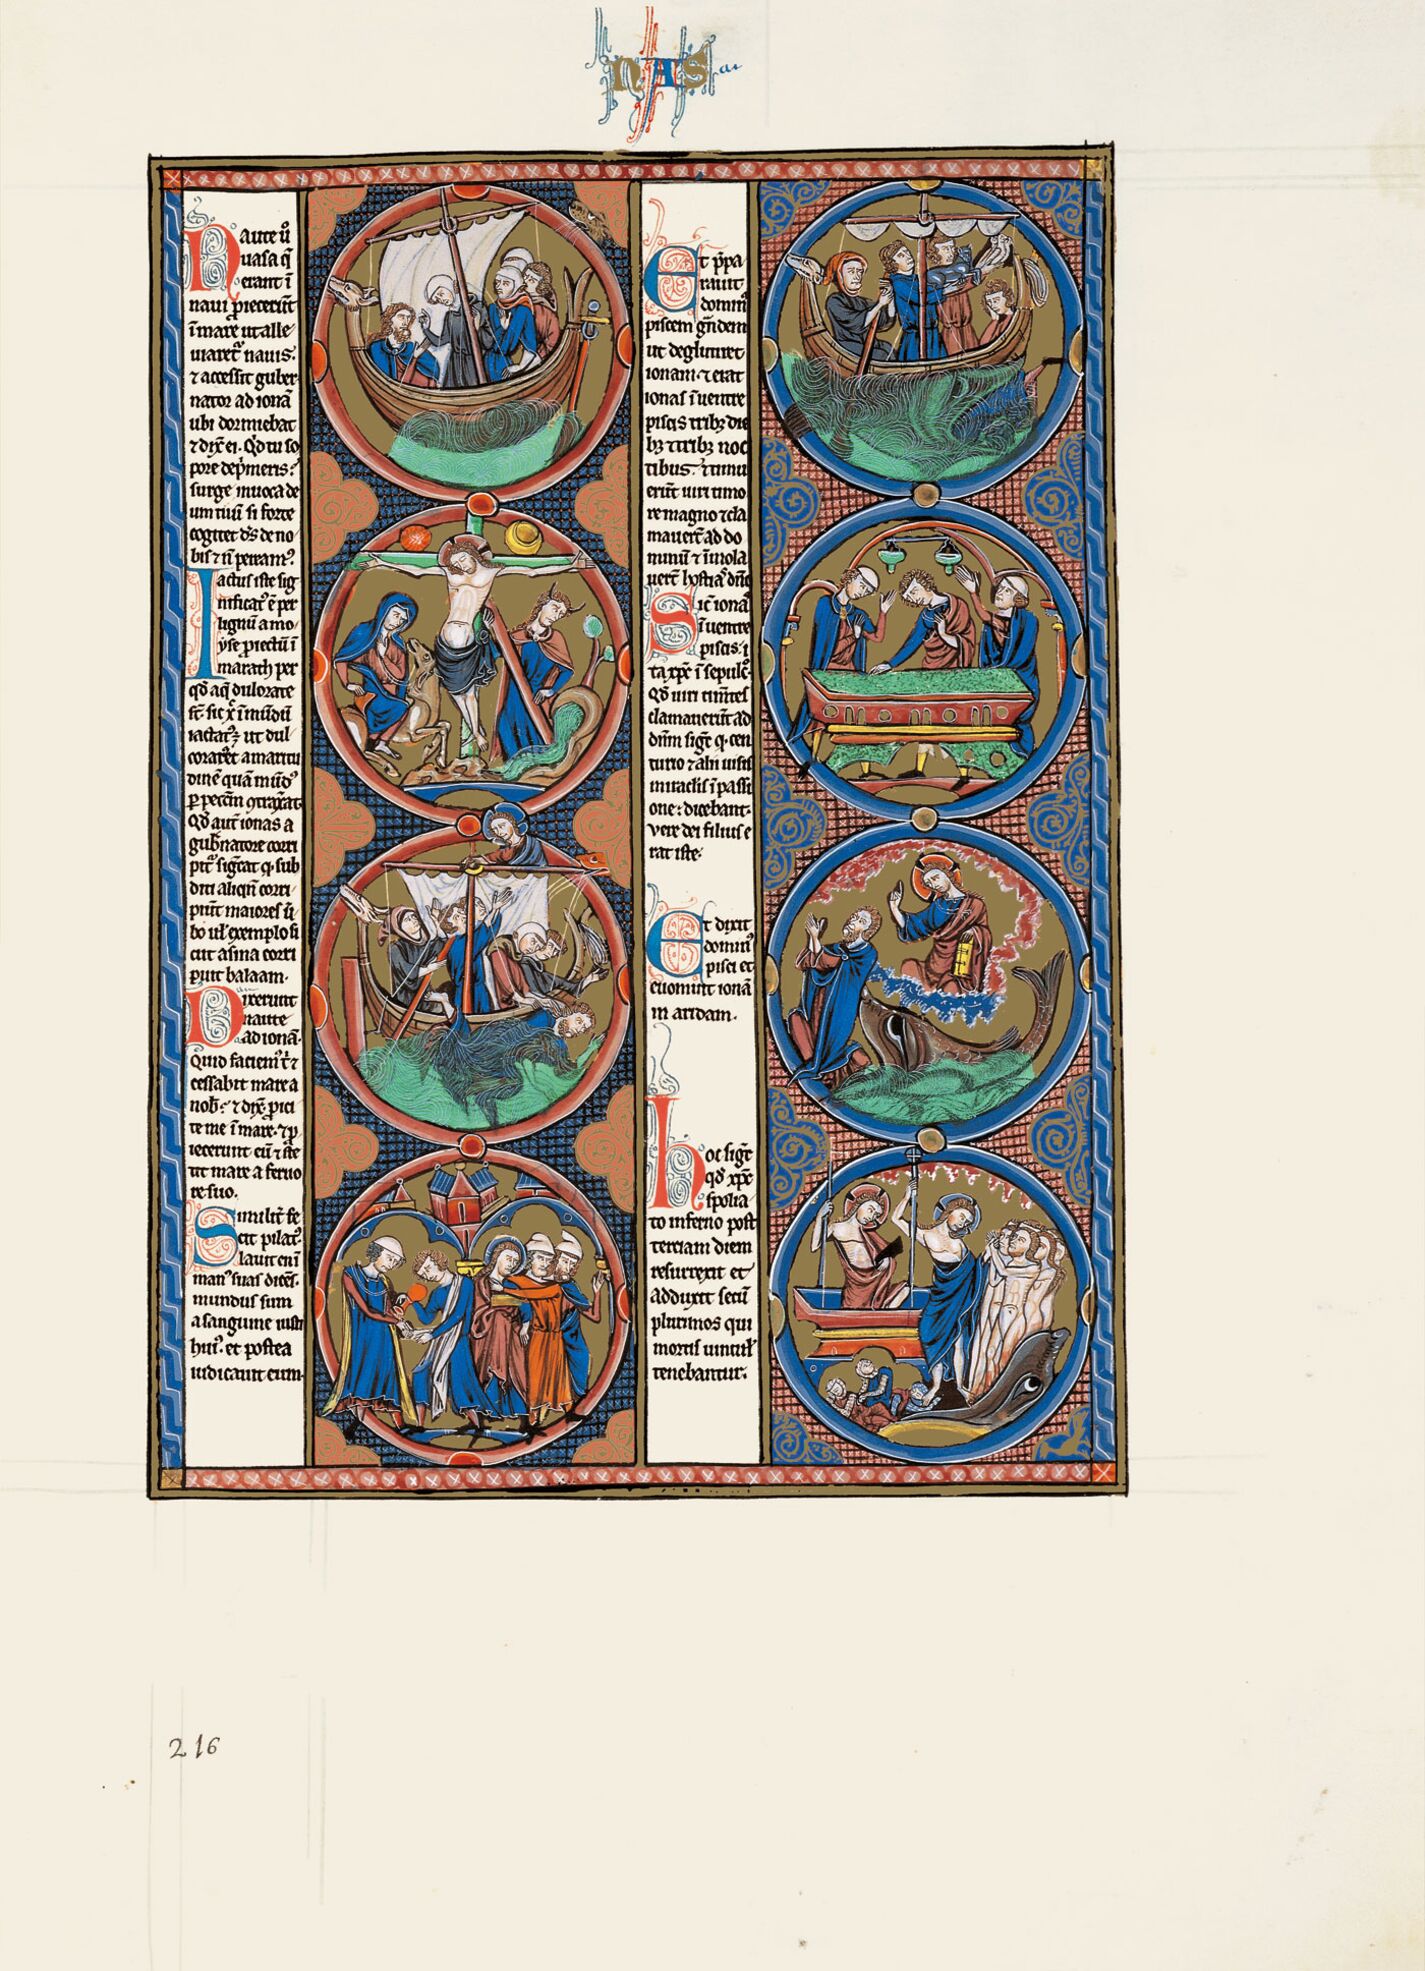 NAS
Naute ū
uasa q̄
erant ī
naui proiecerūt
ī mare ut alle
uiaret᷑ nauis:
⁊ accessit guber
nator ad ionā
ubi dormiebat
⁊ dix̄ ei. Qd̄ tu so
pore dep̄meris:
surge inuoca de
um tuū si forte
cogitet dꝰs de no
bis ⁊ n̄ pereamꝰ
Iactus iste sig
nificat᷑ ē per
lignū a mo
yse proiectū ī
marath per
qd̄ aq̄ dulorate
st̄ sic x̄ ī mūdū
iactat᷑ ut dul
coraret᷑ amaritu
dinē quā mūdꝰ
ꝑ peccm̄ ꝯtraxat
Qd̄ aut̄ ionas a
gub̄natore corri
pit᷑ sig̅cat ꝙ sub
diti aliqn̄ corri
piūt maiores ū
bo ul̄ exemplo si
cut asina corri
puit balaam.
Dixerunt
naute
ad ionā.
Quid faciemꝰ t̄ ⁊
cessabit mare a
nob̄: ⁊ dix̄. ꝓici
te me ī mare. ⁊ ꝓ
iecerunt eū ⁊ ste
tit mare a feruo
re suo.
Similit̄ fe
cit pilatꝰ
lauit enī
manꝰ suas dicēs.
mundus sum
a sanguine iusti
huiꝰ. et postea
iudicauit eum.
Et p̄pa
rauit
dominꝰ
piscem gn̄dem
ut deglutiret
ionam. ⁊ erat
ionas ī uentre
piscis tribꝫ die
bꝫ ⁊ tribꝫ noc
tibus. ⁊ timu
erūt uiri timo
re magno ⁊ cla
mauerūt ad do
minū ⁊ īmola
uerūt hostiā dn̄o
Sic̄ ionas
ī uentre
piscis. i
ta xp̄c ī sepulcꝰ.
Qd̄ uiri timētes
clamauerūt ad
dn̄m sig̅t ꝙ cen
turio ⁊ alii uisis
miraclis ī passi
one: dicebant.
vere dei filius e
rat iste.
Et dixit
dominꝰ
pisci et
euomuit ionā
in aridam.
hoc sig̅t
qd̄ xp̄c
spolia
to inferno post
terciam diem
resurrexit et
adduxit secū
plurimos qui
mortis uincul̄
tenebantur.
216